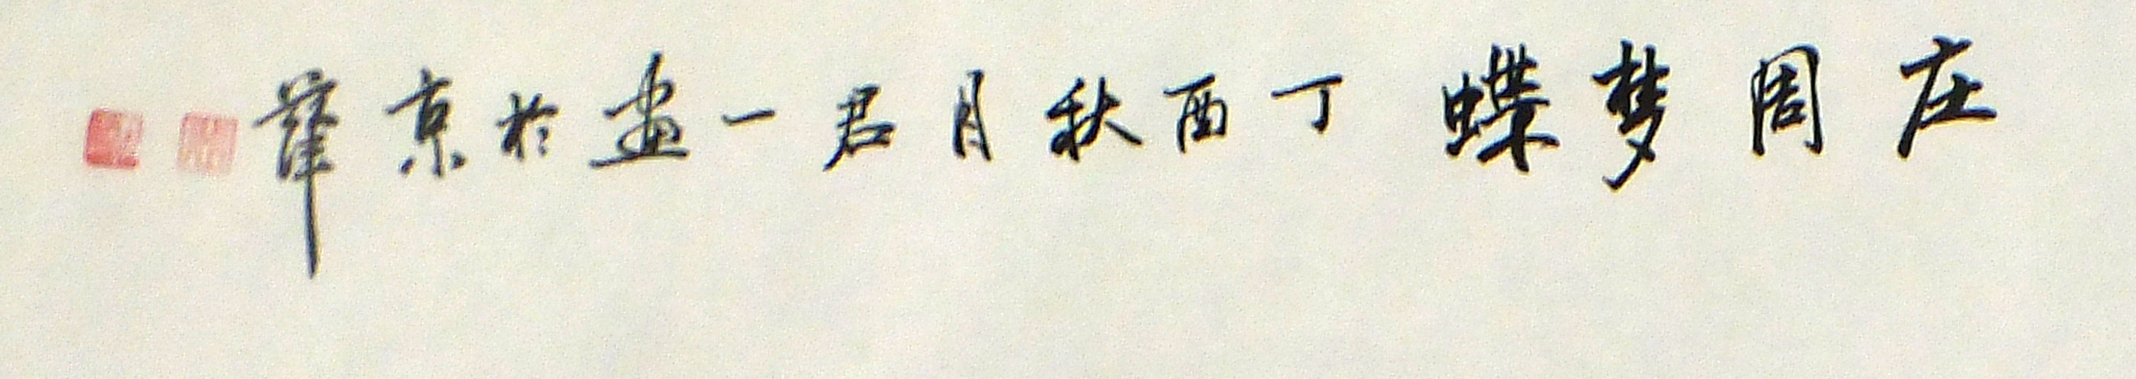 庄周梦蝶 丁酉秋月君一画於京華